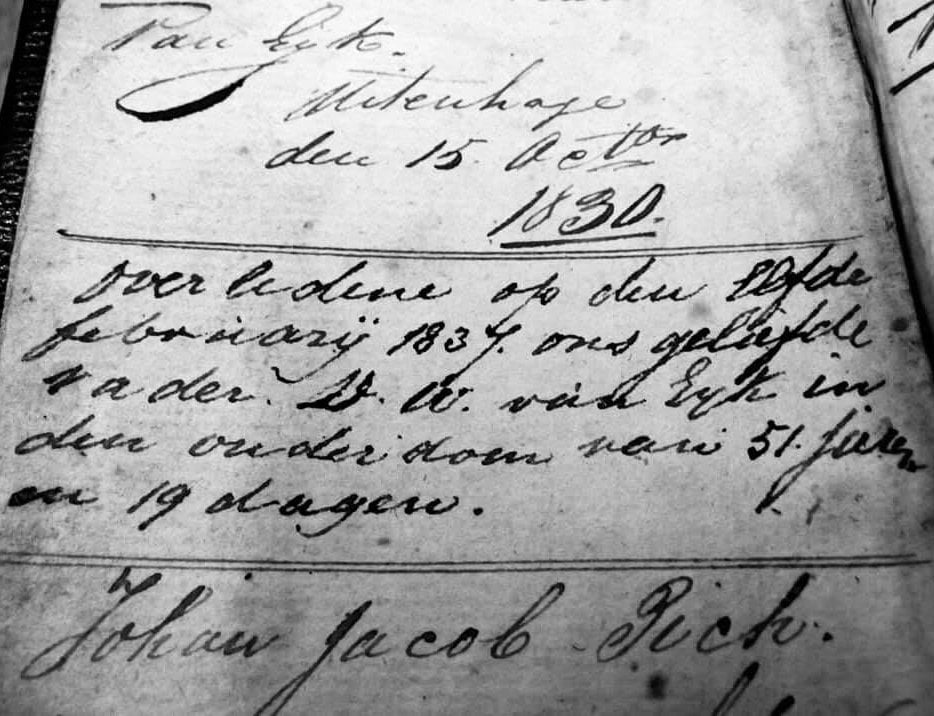 Van Eyk.
Uitenhage
den 15 Octor
1830.
Overledene op den Elfde
februarij 1837. ons geliefde
vader D. W. van Eyk in
den ouderdom van 51. Jaren
en 19 dagen.
Johan Jacob Pich.